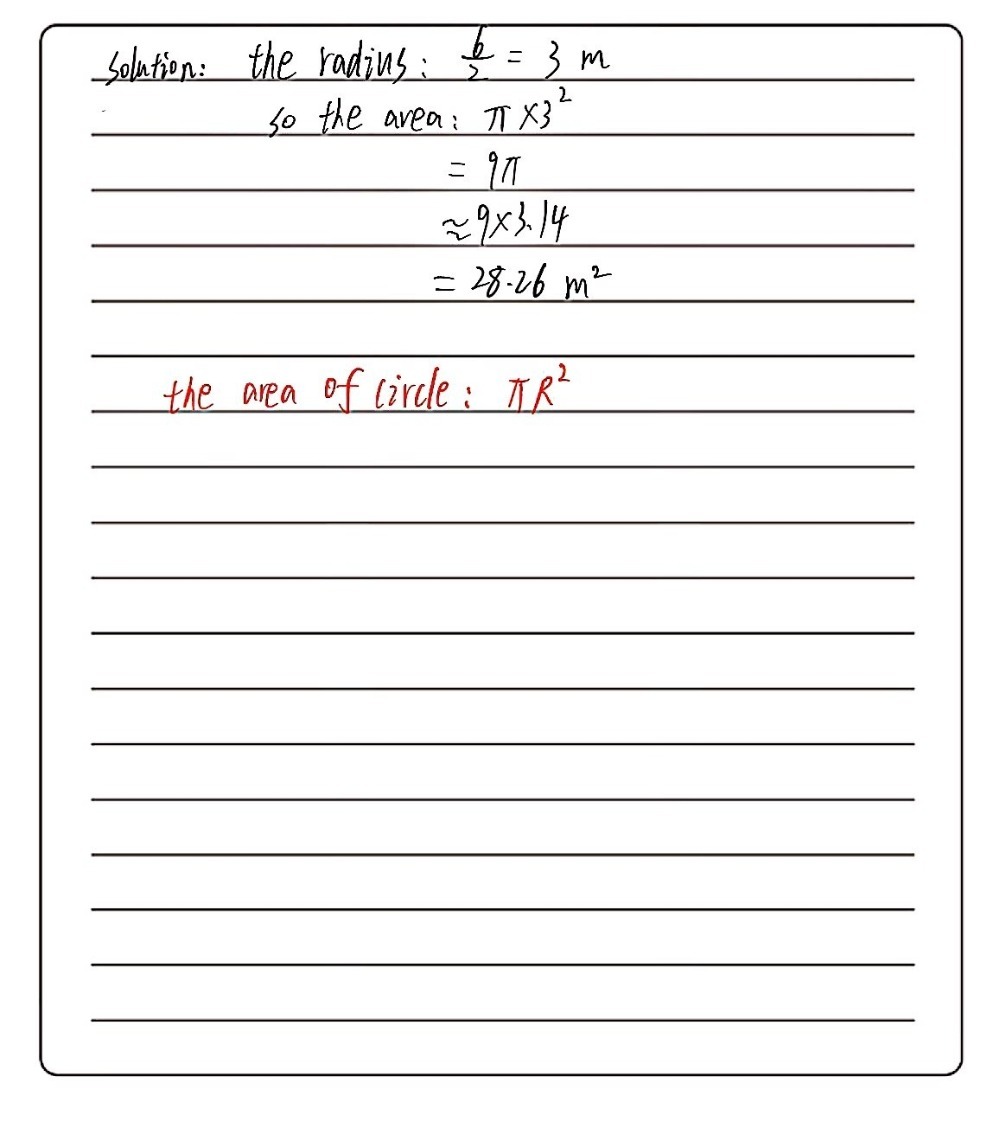 solution: the radius: 6/2 = 3 m
so the area: π×3²
= 9π
≈9×3.14
= 28.26 m²
the area of circle: πR²